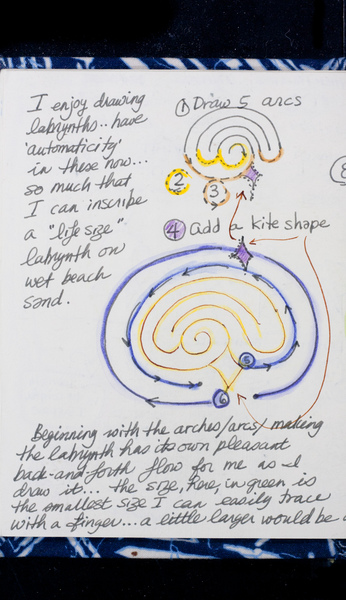 I enjoy drawing
labrynths.. have
'automaticity'
in these now...
so much that
I can inscribe
a "life size"
labrynth on
wet beach
sand.
① Draw 5 arcs
2
3
④ add a kite shape
5
6
Beginning with the arches/arcs, making
the labrynth has its own pleasant
back-and-forth flow for me as I
draw it... the size, here, in green is
the smallest size I can easily trace
with a finger... a little larger would be